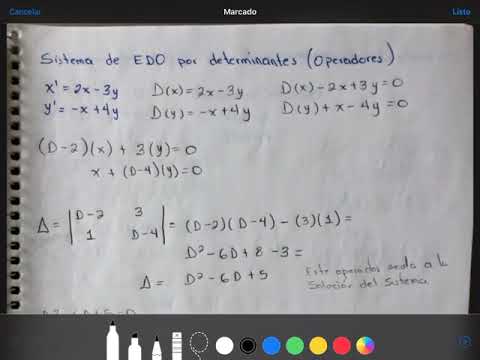 Cancelar Marcado Listo
Sistema de EDO por determinantes (Operadores)
x' = 2x - 3y D(x) = 2x - 3y D(x) - 2x + 3y = 0
y' = -x + 4y D(y) = -x + 4y D(y) + x - 4y = 0
(D-2)(x) + 3(y) = 0
x + (D-4)(y) = 0
Δ = | D-2 3 | = (D-2)(D-4) - (3)(1) =
| 1 D-4 |
D² - 6D + 8 - 3 =
Δ = D² - 6D + 5
Este operador a la
Solución del Sistema